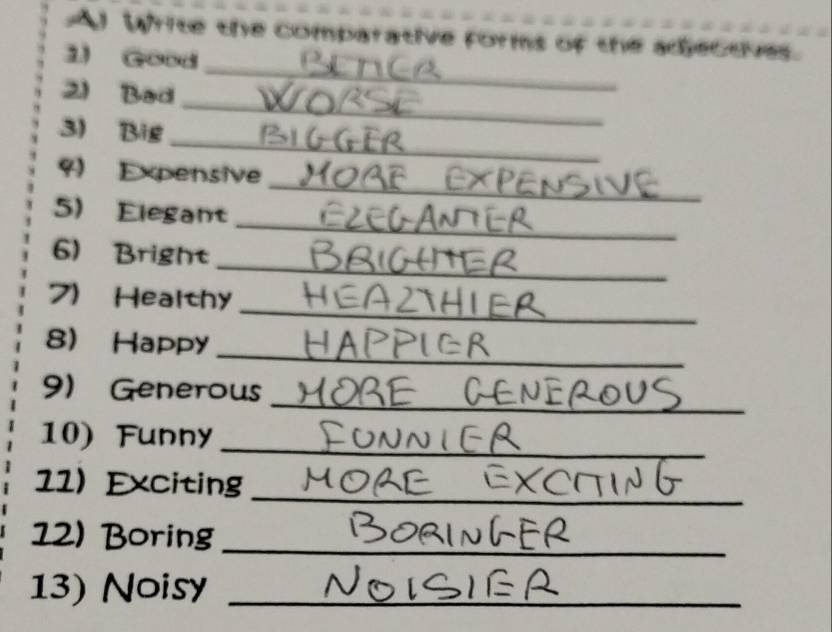 A) Write the comparative forms of the adjectives.
1) Good BETTER
2) Bad WORSE
3) Big BIGGER
4) Expensive MORE EXPENSIVE
5) Elegant ELEGANTER
6) Bright BRIGHTER
7) Healthy HEALTHIER
8) Happy HAPPIER
9) Generous MORE GENEROUS
10) Funny FUNNIER
11) Exciting MORE EXCITING
12) Boring BORINGER
13) Noisy NOISIER